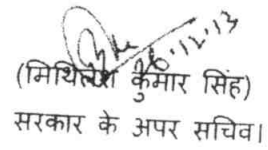 26.12.13
(मिथिलेश कुमार सिंह)
सरकार के अपर सचिव।